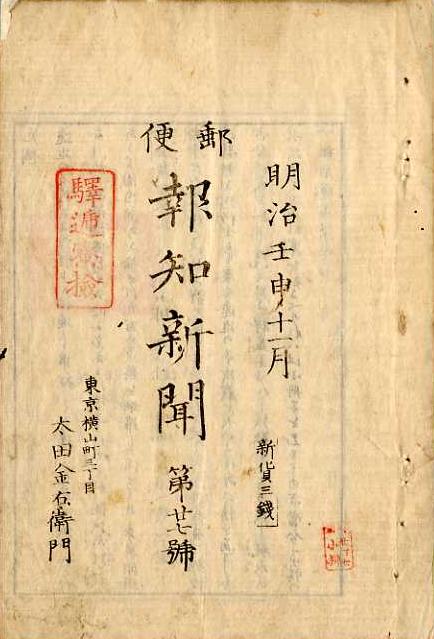 明治壬申十一月
新貨三錢
郵便
報知新聞
第廿七號
東京横山町三丁目
太田金右衛門
驛逓寮検